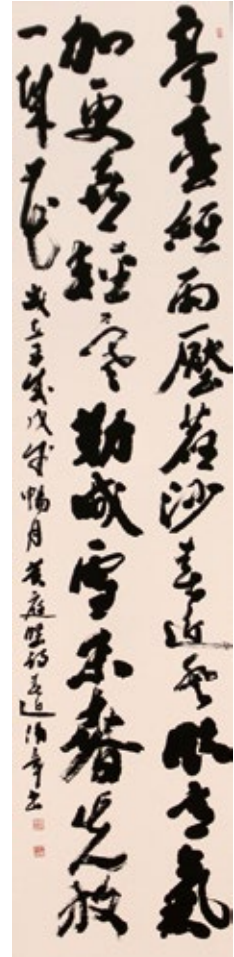 亭臺經雨壓塵沙春近登臨意氣
加更喜輕寒勒成雪未春先放
一城花 歲戊戌暢月黃庭堅詩春近書